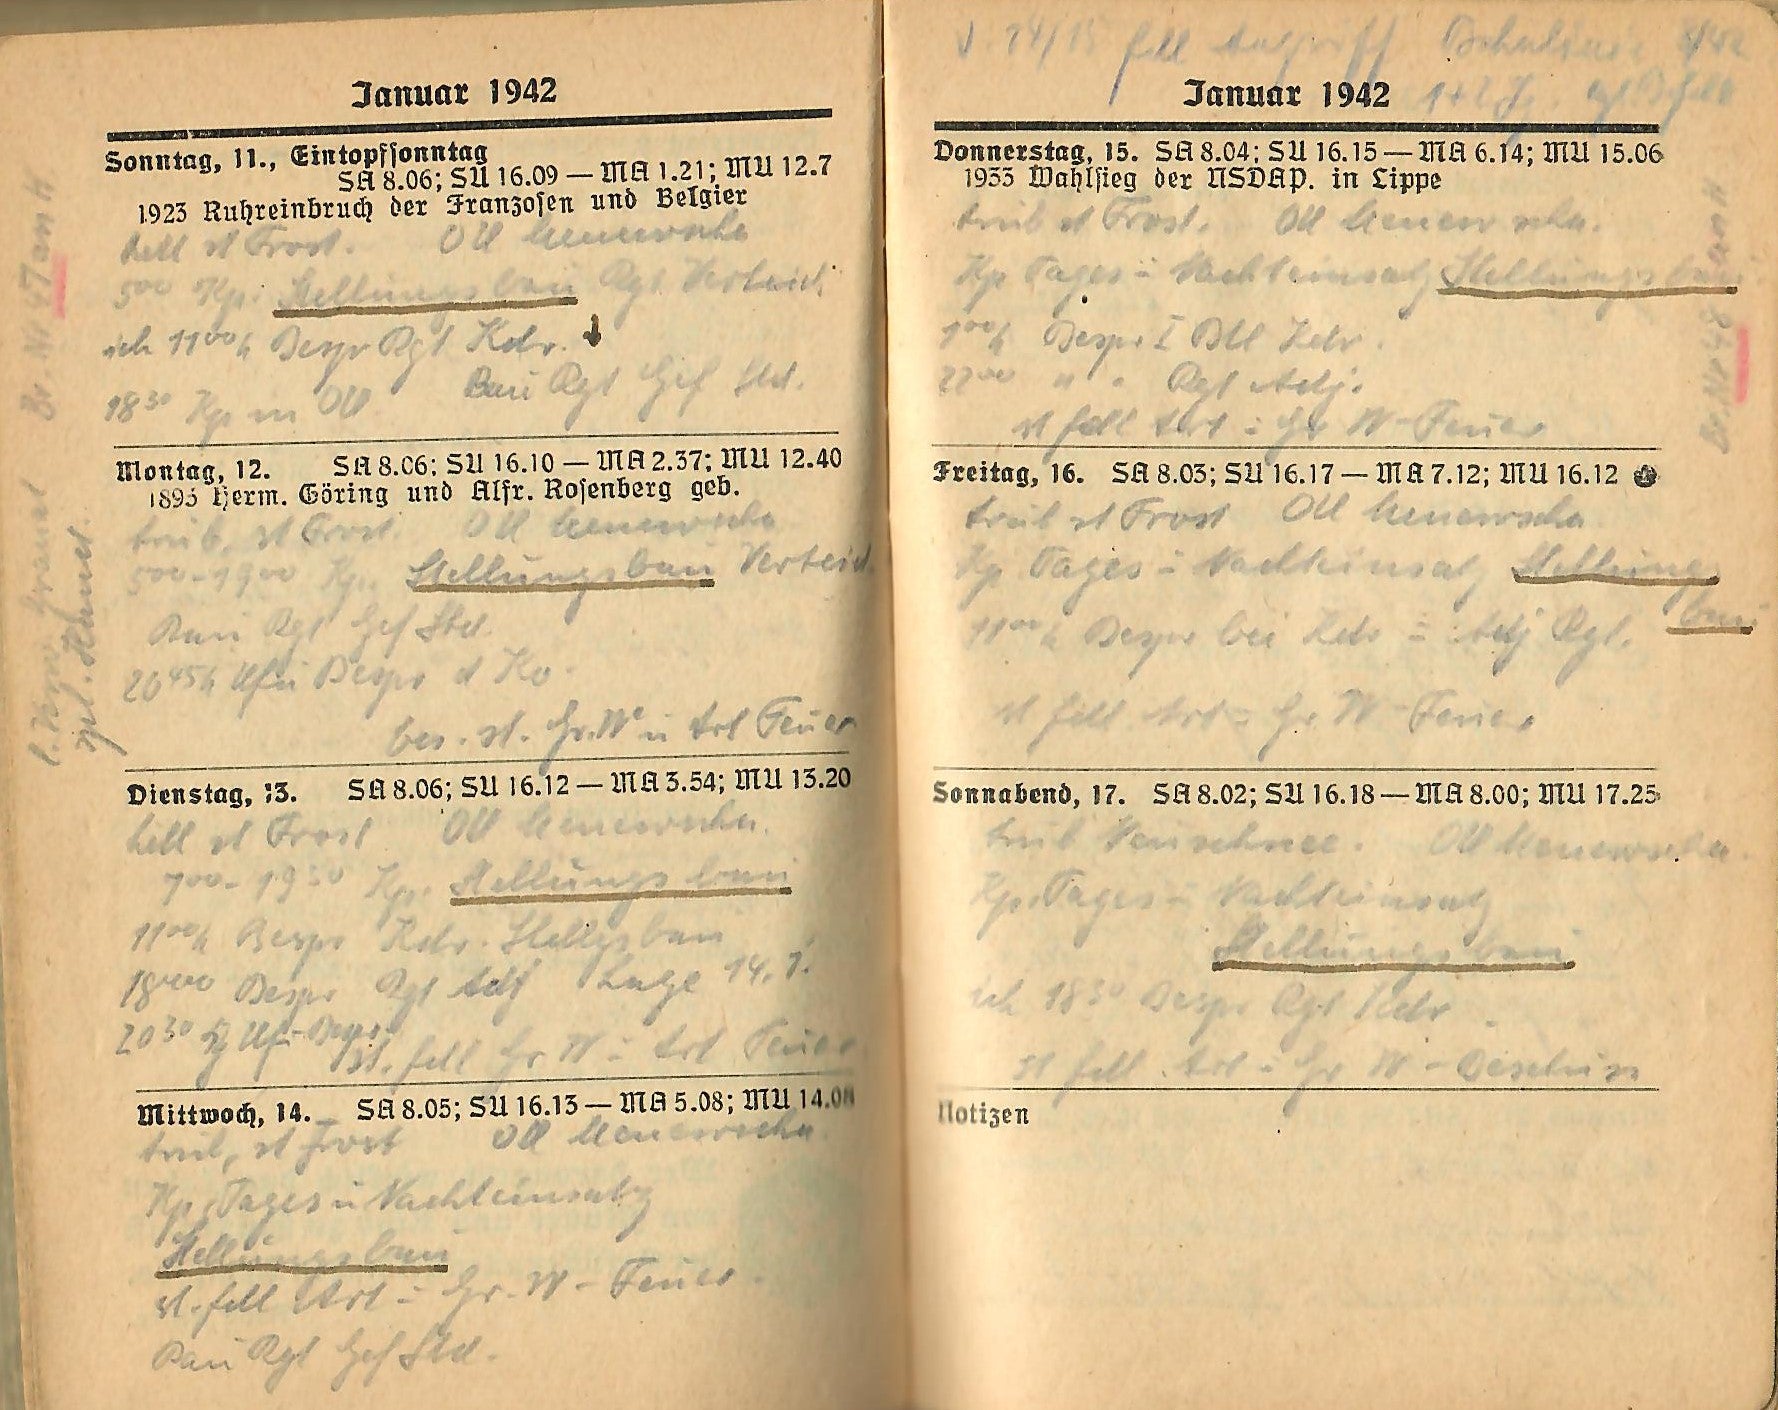 Januar 1942
Sonntag, 11., Eintopfsonntag
SA 8.06; SU 16.09 — MA 1.21; MU 12.7
1923 Ruhreinbruch der Franzosen und Belgier
hell st Frost. OU
5⁰⁰ Kp. Stellungsbau Rgt Verteid.
ich 11⁰⁰h Bespr Rgt Kdr. ↓
Bau Rgt Gef Std.
18³⁰ Kp in OU
Montag, 12. SA 8.06; SU 16.10 — MA 2.37; MU 12.40
1893 Herm. Göring und Alfr. Rosenberg geb.
trüb, st Frost. OU
5⁰⁰-19⁰⁰ Kp. Stellungsbau Verteid.
Bau Rgt Gef Std.
20⁴⁵h Uffz Bespr d Ko.
bes. st. Gr.W. u Art Feuer
Dienstag, 13. SA 8.06; SU 16.12 — MA 3.54; MU 13.20
hell st Frost OU
7⁰⁰-19³⁰ Kp. Stellungsbau
11⁰⁰h Bespr Kdr. Stellgsbau
18⁰⁰ Bespr Rgt Adj Lage 14.1.
20³⁰ Uf-Bespr
st. fdl Gr W u Art Feuer
Mittwoch, 14. SA 8.05; SU 16.13 — MA 5.08; MU 14.08
trüb, st Frost OU
Kp. Tages u Nachteinsatz
Stellungsbau
st. fdl Art u Gr. W - Feuer.
Bau Rgt Gef Std.
Br. Nr 47 an H
14/15 fdl Angriff
Januar 1942
Donnerstag, 15. SA 8.04; SU 16.15 — MA 6.14; MU 15.06
1933 Wahlsieg der NSDAP. in Lippe
trüb st Frost. OU
Kp Tages u Nachteinsatz Stellungsbau
Bespr I Btl Kdr.
22⁰⁰ " " Rgt Adj.
st fdl Art u Gr W - Feuer
Freitag, 16. SA 8.03; SU 16.17 — MA 7.12; MU 16.12
trüb st Frost OU
Kp Tages u Nachteinsatz Stellungs
bau
11⁰⁰h Bespr bei Kdr u Adj Rgt.
st fdl Art u Gr. W - Feuer
Sonnabend, 17. SA 8.02; SU 16.18 — MA 8.00; MU 17.25
trüb Neuschnee. OU
Kp. Tages u Nachteinsatz
Stellungsbau
ich 18³⁰ Bespr Rgt Kdr.
st fdl. Art u Gr W - Beschuss
Notizen
Br. Nr 48 an H